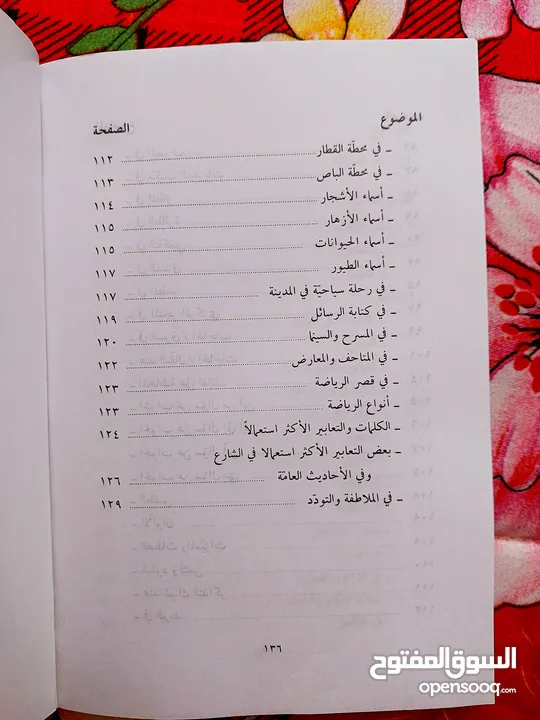 الموضوع الصفحة
ـ في محطّة القطار ........ ١١٢
ـ في محطّة الباص ........ ١١٣
ـ أسماء الأشجار ........ ١١٤
ـ أسماء الأزهار ........ ١١٥
ـ أسماء الحيوانات ........ ١١٥
ـ أسماء الطيور ........ ١١٧
ـ في رحلة سياحيّة في المدينة ........ ١١٧
ـ في كتابة الرسائل ........ ١١٩
ـ في المسرح والسينما ........ ١٢٠
ـ في المتاحف والمعارض ........ ١٢٢
ـ في قصر الرياضة ........ ١٢٣
ـ أنواع الرياضة ........ ١٢٣
ـ الكلمات والتعابير الأكثر استعمالاً ........ ١٢٤
ـ بعض التعابير الأكثر استعمالا في الشارع
وفي الأحاديث العامّة ........ ١٢٦
ـ في الملاطفة والتودّد ........ ١٢٩
١٣٦
السوق المفتوح
opensooq.com